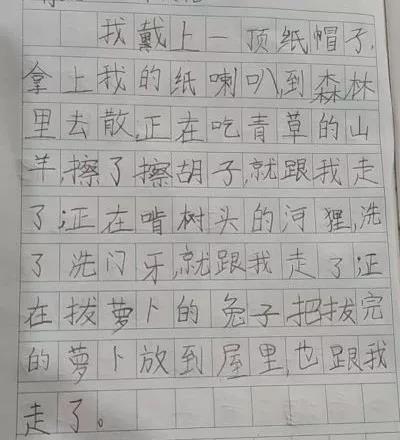 我戴上一顶纸帽子,
拿上我的纸喇叭,到森林
里去散,正在吃青草的山
羊,擦了擦胡子,就跟我走
了;正在啃树头的河狸,洗
了洗门牙,就跟我走了;正
在拔萝卜的兔子,把拔完
的萝卜放到屋里,也跟我
走了。